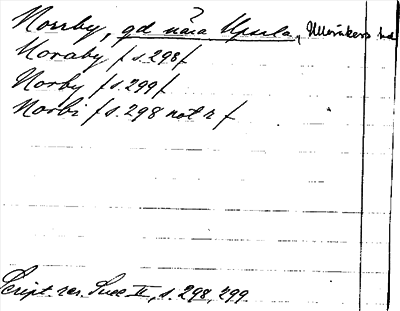 Norrby, gd nära Upsala, Ulleråkers hd
Noraby f s. 298 f
Norby f s. 299 f
Norbi f s. 298 not r f
Script. rer. Svec II, s. 298, 299.